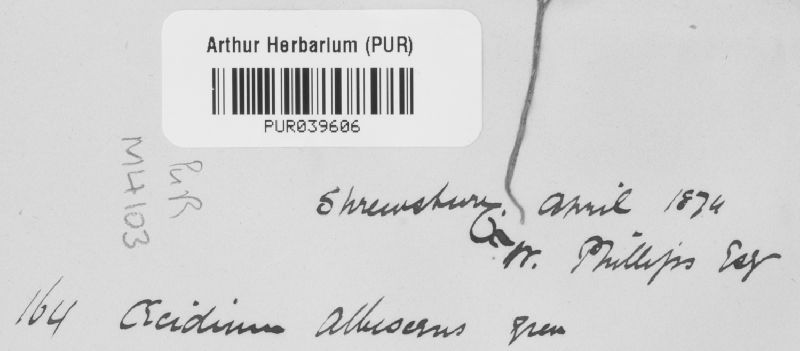 Arthur Herbarium (PUR)
PUR039606
PUR
M4103
Shrewsbury April 1874
W. Phillips Esq
164 Œcidium albescens Grev